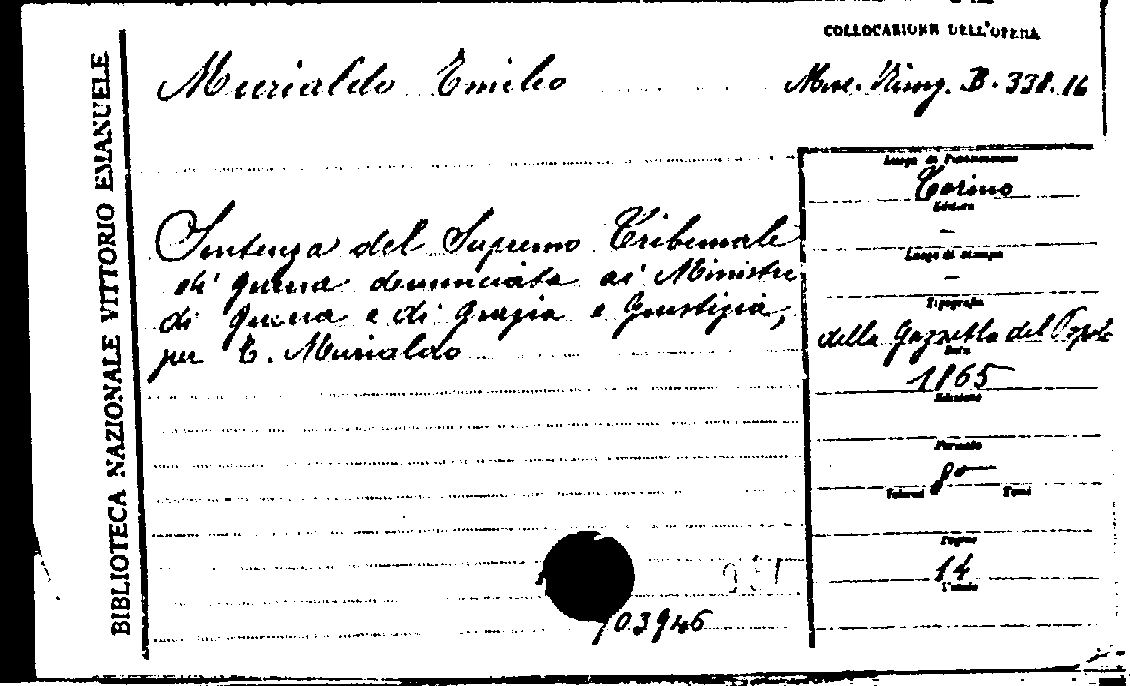 COLLOCAZIONE DELL'OPERA
Murialdo Emilio
Misc. Risorg. B. 338. 16
BIBLIOTECA NAZIONALE VITTORIO EMANUELE
Luogo di Pubblicazione
Torino
Editore
—
Luogo di stampa
—
Tipografia
della Gazzetta del Popolo
Data
1865
Edizione
Formato
8°
Volumi Tomi
Pagine
14
Sentenza del Supremo Tribunale
di guerra denunciata ai Ministri
di Guerra e di Grazia e Giustizia,
per E. Murialdo
103946